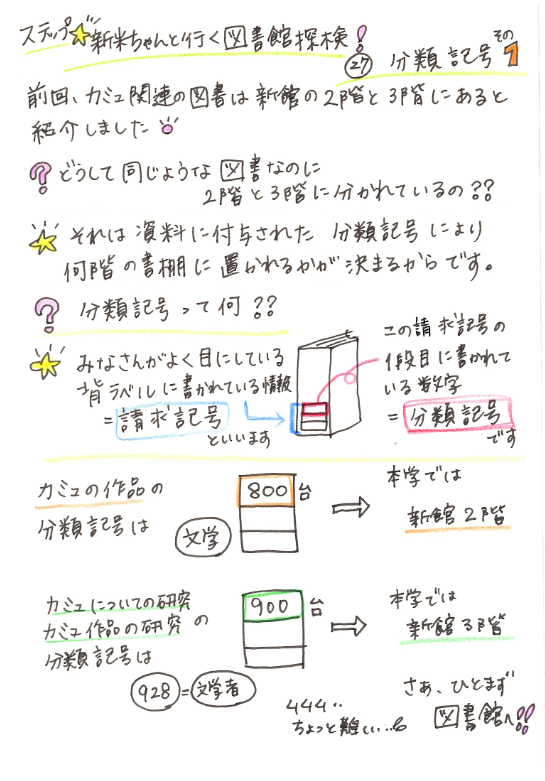 ステップ 新米ちゃんと行く図書館探検!
㉗ 分類記号 その1
前回、カミュ関連の図書は新館の2階と3階にあると
紹介しました
? どうして同じような図書なのに
2階と3階に分かれているの??
それは資料に付与された分類記号により
何階の書棚に置かれるかが決まるからです。
? 分類記号って何??
みなさんがよく目にしている
背ラベルに書かれている情報
=請求記号
といいます
この請求記号の
1段目に書かれて
いる数字
=分類記号
です
カミュの作品の
分類記号は
文学
800台
⇒
本学では
新館2階
カミュについての研究
カミュ作品の研究の
分類記号は
928=文学者
900台
⇒
本学では
新館3階
444‥
ちょっと難しい…
さあ、ひとまず
図書館へ!!